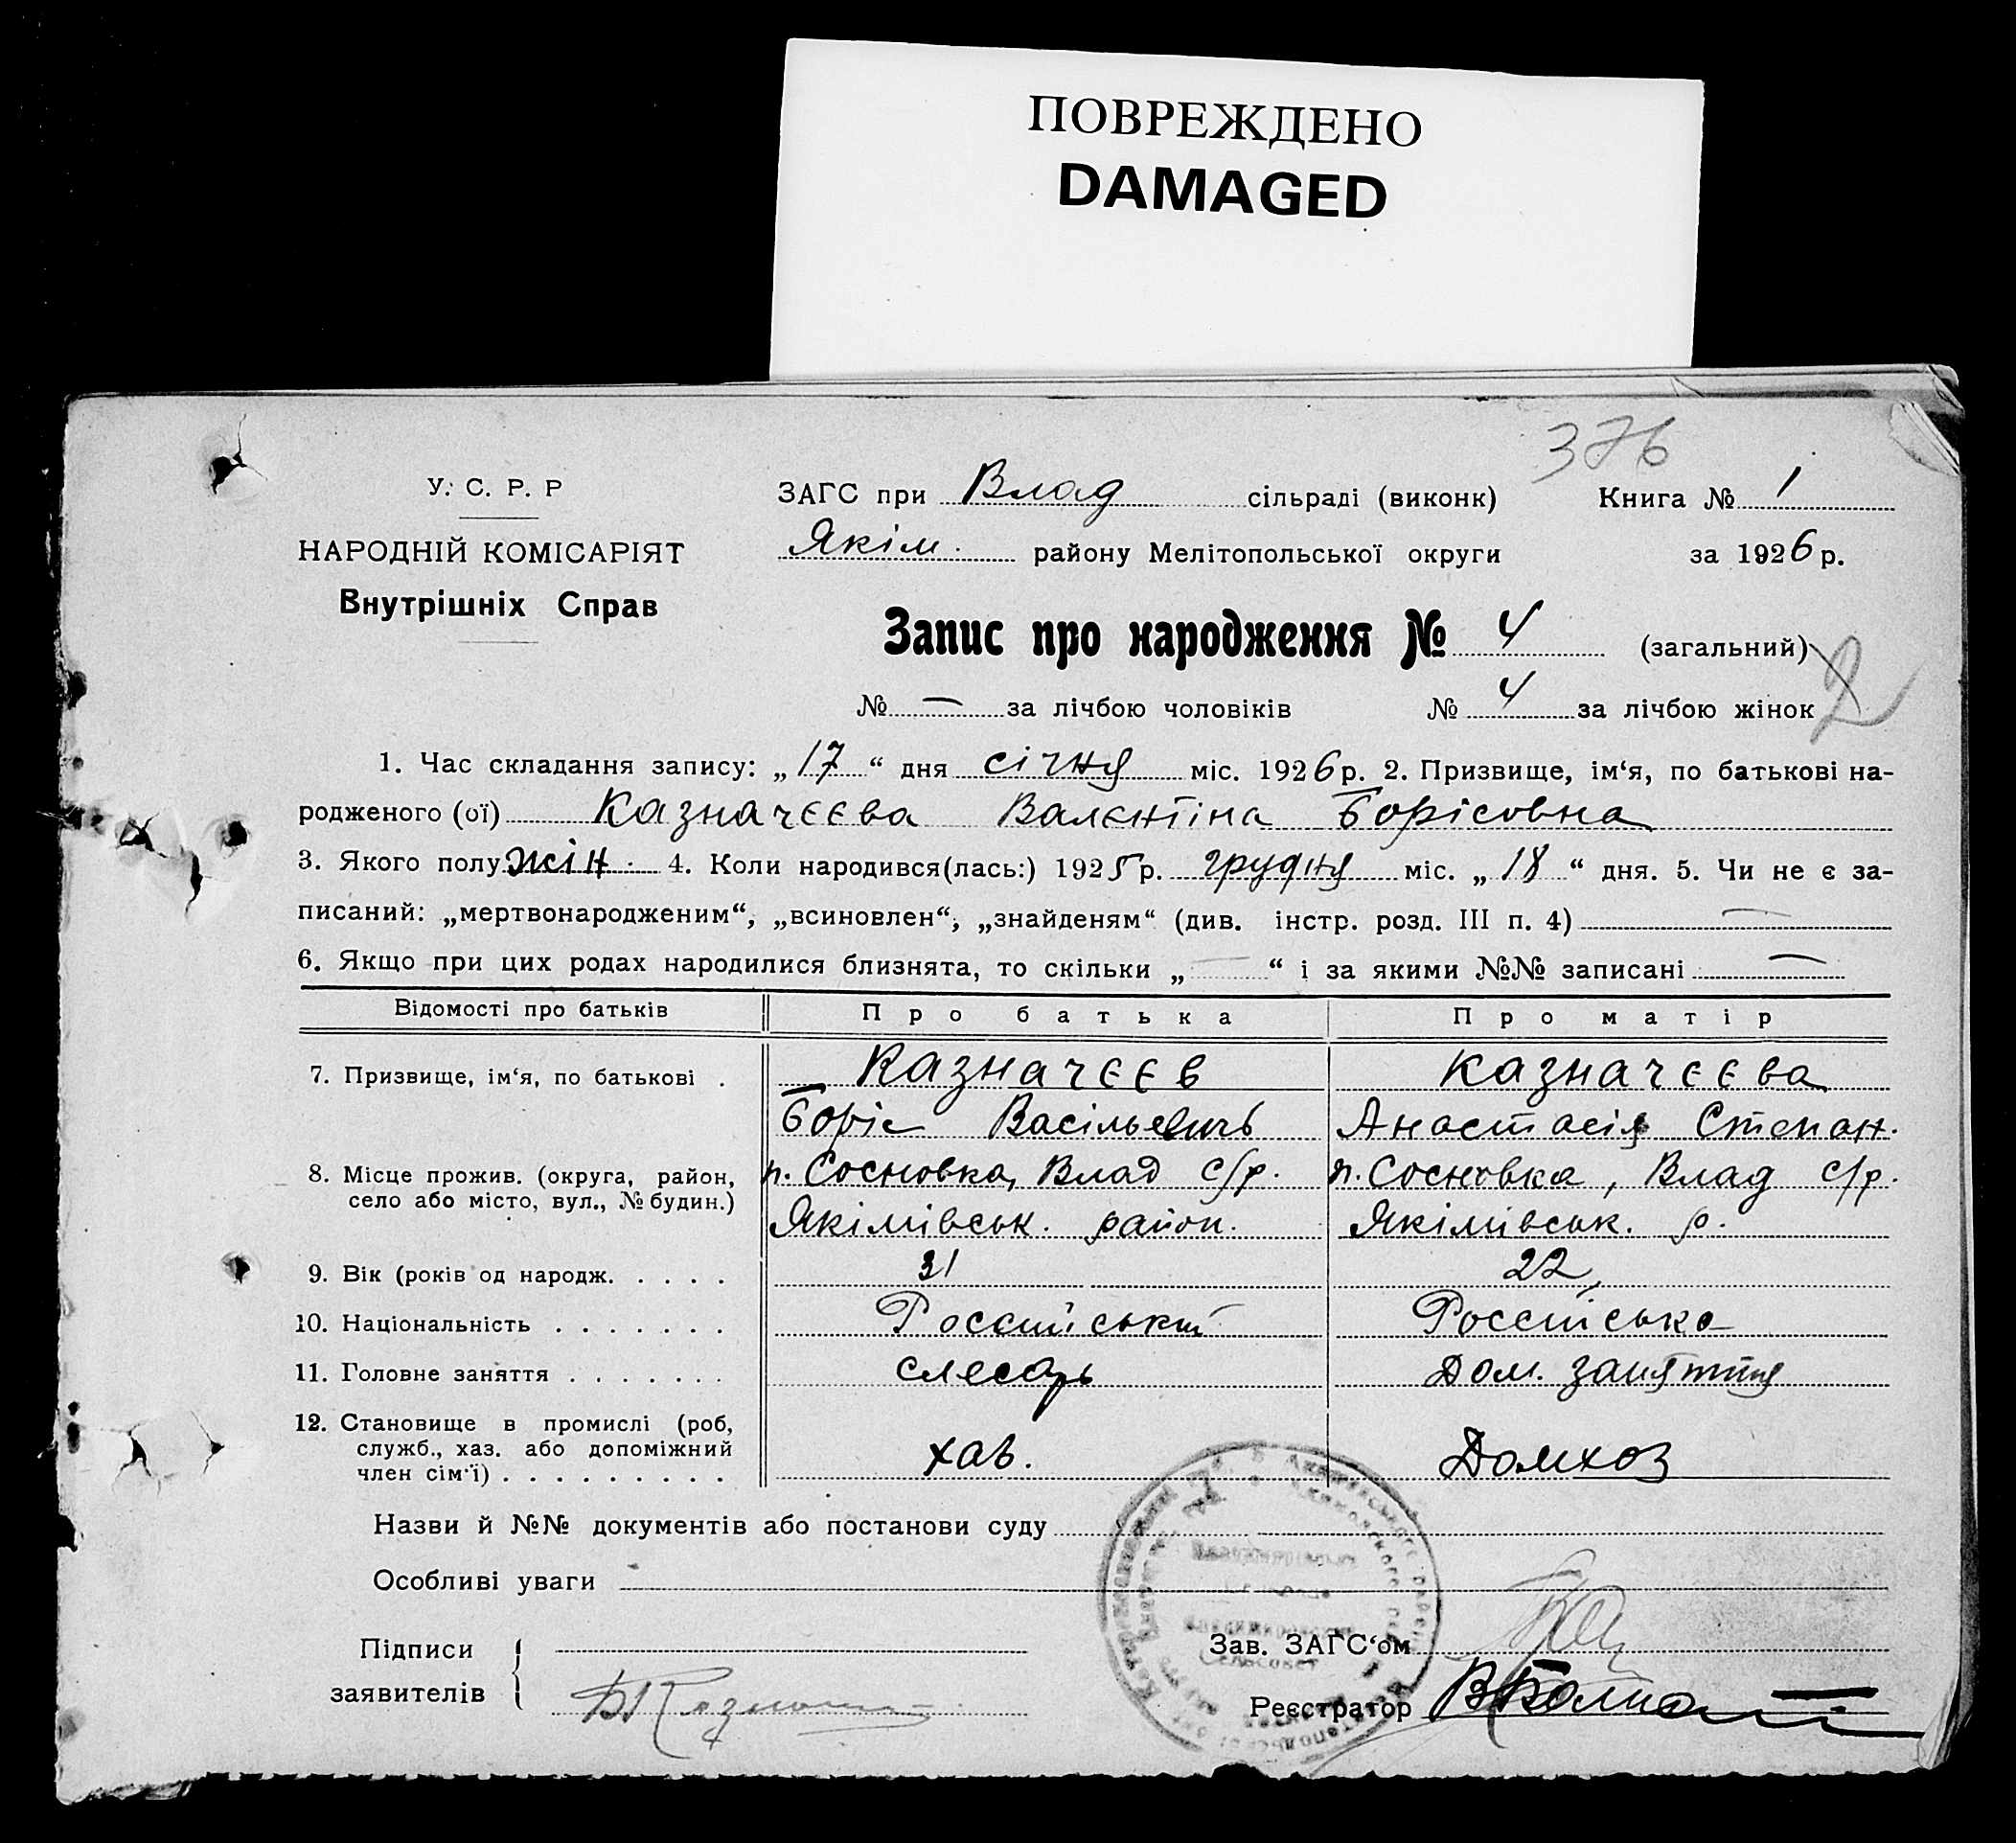 ПОВРЕЖДЕНО
DAMAGED
376
У. С. Р. Р
НАРОДНІЙ КОМІСАРІЯТ
Внутрішніх Справ
ЗАГС при Влад сільраді (виконк) Книга № 1
Якім. району Мелітопольської округи за 1926 р.
Запис про народження № 4 (загальний)
№ — за лічбою чоловіків № 4 за лічбою жінок
2
1. Час складання запису: „17“ дня січня міс. 1926 р. 2. Призвище, ім‘я, по батькові на-
родженого (ої) Казначєєва Валєнтіна Борісовна
3. Якого полу жін. 4. Коли народився(лась:) 1925 р. грудня міс. „18“ дня. 5. Чи не є за-
писаний: „мертвонародженим“, „всиновлен“, „знайденям“ (див. інстр. розд. III п. 4) —
6. Якщо при цих родах народилися близнята, то скільки „—“ і за якими №№ записані —
Відомості про батьків Про батька Про матір
7. Призвище, ім‘я, по батькові . Казначєєв Казначєєва
Боріс Васільевичь Анастасія Степан.
8. Місце прожив. (округа, район, п. Сосновка, Влад с/р. п. Сосновка, Влад с/р.
село або місто, вул., № будин.) Якімівськ. район. Якімівськ. р.
9. Вік (років од народж. . . . . 31 22
10. Національність . . . . . . . Россійський Россійська
11. Головне заняття . . . . . . . слесарь Дом. заняття
12. Становище в промислі (роб,
служб., хаз. або допоміжний хав. Домхоз
член сім‘ї) . . . . . . . . .
Назви й №№ документів або постанови суду
Особливі уваги
Підписи
заявителів
Зав. ЗАГС‘ом
Реєстратор